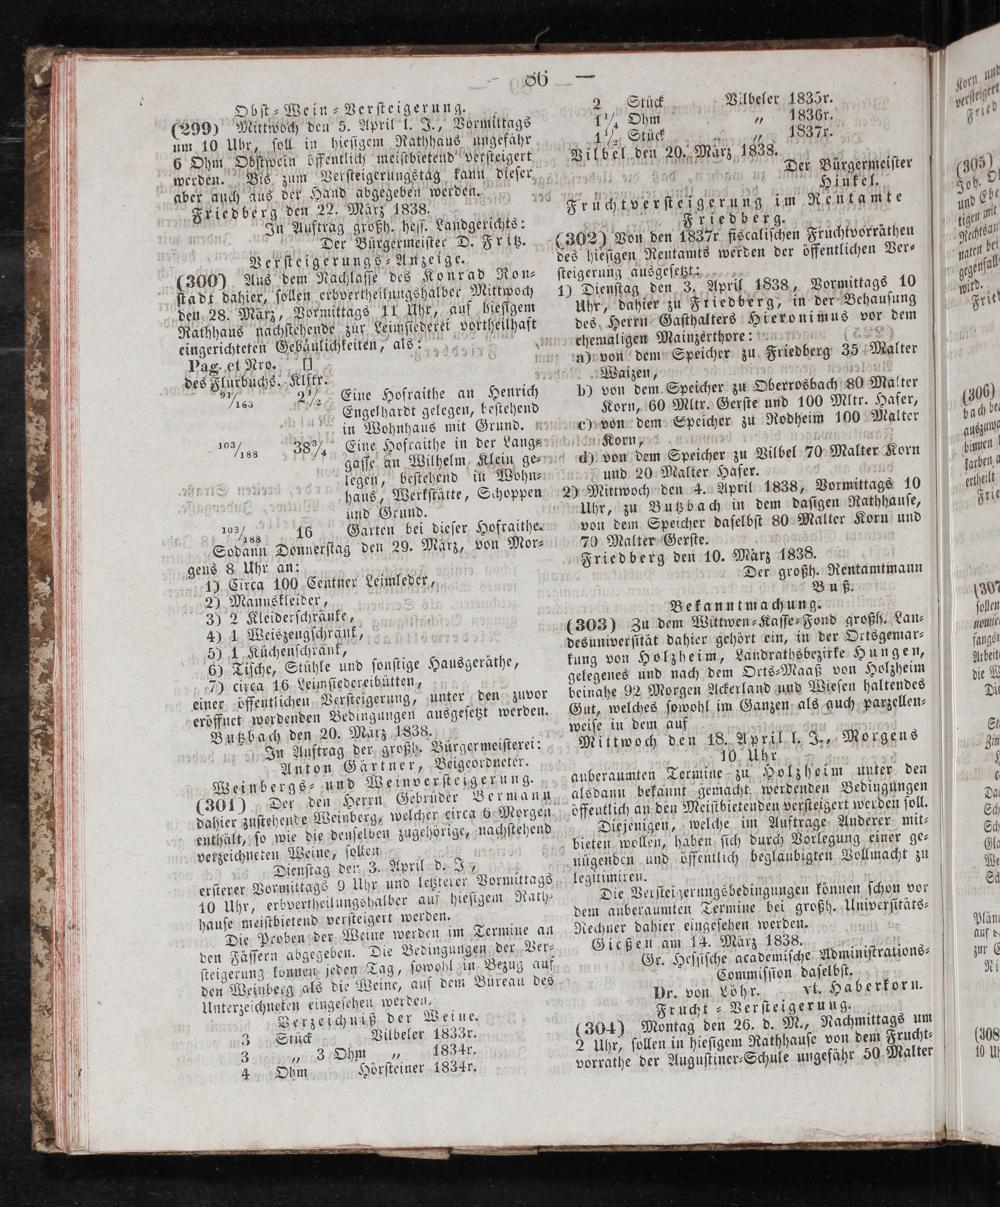 — 86 —
Obst-Wein-Versteigerung.
(299) Mittwoch den 5. April l. J., Vormittags
um 10 Uhr, soll in hiesigem Rathhaus ungefähr
6 Ohm Obstwein öffentlich meistbietend versteigert
werden. Bis zum Versteigerungstag kann dieser
aber auch aus der Hand abgegeben werden.
Friedberg den 22. März 1838.
In Auftrag großh. hess. Landgerichts:
Der Bürgermeister D. Fritz.
Versteigerungs-Anzeige.
(300) Aus dem Nachlasse des Konrad Ron-
stadt dahier, sollen erbvertheilungshalber Mittwoch
den 28. März, Vormittags 11 Uhr, auf hiesigem
Rathhaus nachstehende zur Leimsiederei vortheilhaft
eingerichteten Gebäulichkeiten, als:
Pag. et Nro. □
des Flurbuchs. Klftr.
91/163 2½ Eine Hofraithe an Henrich
Engelhardt gelegen, bestehend
in Wohnhaus mit Grund.
103/188 38¾ Eine Hofraithe in der Lang-
gasse an Wilhelm Klein ge-
legen, bestehend in Wohn-
haus, Werkstätte, Schoppen
und Grund.
103/188 16 Garten bei dieser Hofraithe.
Sodann Donnerstag den 29. März, von Mor-
gens 8 Uhr an:
1) Circa 100 Centner Leimleder,
2) Mannskleider,
3) 2 Kleiderschränke,
4) 1 Weiszeugschrank,
5) 1 Küchenschrank,
6) Tische, Stühle und sonstige Hausgeräthe,
7) circa 16 Leimsiedereibütten,
einer öffentlichen Versteigerung, unter den zuvor
eröffnet werdenden Bedingungen ausgesetzt werden.
Butzbach den 20. März 1838.
In Auftrag der großh. Bürgermeisterei:
Anton Gärtner, Beigeordneter.
Weinbergs- und Weinversteigerung.
(301) Der den Herrn Gebrüder Bermann
dahier zustehende Weinberg, welcher circa 6 Morgen
enthält, so wie die denselben zugehörige, nachstehend
verzeichneten Weine, sollen
Dienstag den 3. April d. J.,
ersterer Vormittags 9 Uhr und letzterer Vormittags
10 Uhr, erbvertheilungshalber auf hiesigem Rath-
hause meistbietend versteigert werden.
Die Proben der Weine werden im Termine an
den Fässern abgegeben. Die Bedingungen der Ver-
steigerung können jeden Tag, sowohl in Bezug auf
den Weinberg als die Weine, auf dem Büreau des
Unterzeichneten eingesehen werden.
Verzeichniß der Weine.
3 Stück Vilbeler 1833r.
3 „ 3 Ohm „ 1834r.
4 Ohm Hörsteiner 1834r.
2 Stück Vilbeler 1835r.
1¼ Ohm „ 1836r.
1½ Stück „ 1837r.
Vilbel den 20. März 1838.
Der Bürgermeister
Hinkel.
Fruchtversteigerung im Rentamte
Friedberg.
(302) Von den 1837r fiscalischen Fruchtvorräthen
des hiesigen Rentamts werden der öffentlichen Ver-
steigerung ausgesetzt:
1) Dienstag den 3. April 1838, Vormittags 10
Uhr, dahier zu Friedberg, in der Behausung
des Herrn Gasthalters Hieronimus vor dem
ehemaligen Mainzerthore:
a) von dem Speicher zu Friedberg 35 Malter
Waizen,
b) von dem Speicher zu Oberrosbach 80 Malter
Korn, 60 Mltr. Gerste und 100 Mltr. Hafer,
c) von dem Speicher zu Rodheim 100 Malter
Korn,
d) von dem Speicher zu Vilbel 70 Malter Korn
und 20 Malter Hafer.
2) Mittwoch den 4. April 1838, Vormittags 10
Uhr, zu Butzbach in dem dasigen Rathhause,
von dem Speicher daselbst 80 Malter Korn und
70 Malter Gerste.
Friedberg den 10. März 1838.
Der großh. Rentamtmann
Buß.
Bekanntmachung.
(303) Zu dem Wittwen-Kasse-Fond großh. Lan-
desuniversität dahier gehört ein, in der Ortsgemar-
kung von Holzheim, Landrathsbezirke Hungen,
gelegenes und nach dem Orts-Maaß von Holzheim
beinahe 92 Morgen Ackerland und Wiesen haltendes
Gut, welches sowohl im Ganzen als auch parzellen-
weise in dem auf
Mittwoch den 18. April l. J., Morgens
10 Uhr
anberaumten Termine zu Holzheim unter den
alsdann bekannt gemacht werdenden Bedingungen
öffentlich an den Meistbietenden versteigert werden soll.
Diejenigen, welche im Auftrage Anderer mit-
bieten wollen, haben sich durch Vorlegung einer ge-
nügenden und öffentlich beglaubigten Vollmacht zu
legitimiren.
Die Versteigerungsbedingungen können schon vor
dem anberaumten Termine bei großh. Universitäts-
Rechner dahier eingesehen werden.
Gießen am 14. März 1838.
Gr. Hessische academische Administrations-
Commission daselbst.
Dr. von Löhr. vt. Haberkorn.
Frucht-Versteigerung.
(304) Montag den 26. d. M., Nachmittags um
2 Uhr, sollen in hiesigem Rathhause von dem Frucht-
vorrathe der Augustiner-Schule ungefähr 50 Malter
Korn und
versteigert
Fried
(305)
Joh.
und Ebe
tigen mit
Rechtsan
naten bei
gegenfall
wird.
Fried
(306)
bach
auszuwa
binnen
farben
ertheilt
Frie
(307
sollen
Arbeit
die
Da
(308
10 Uh